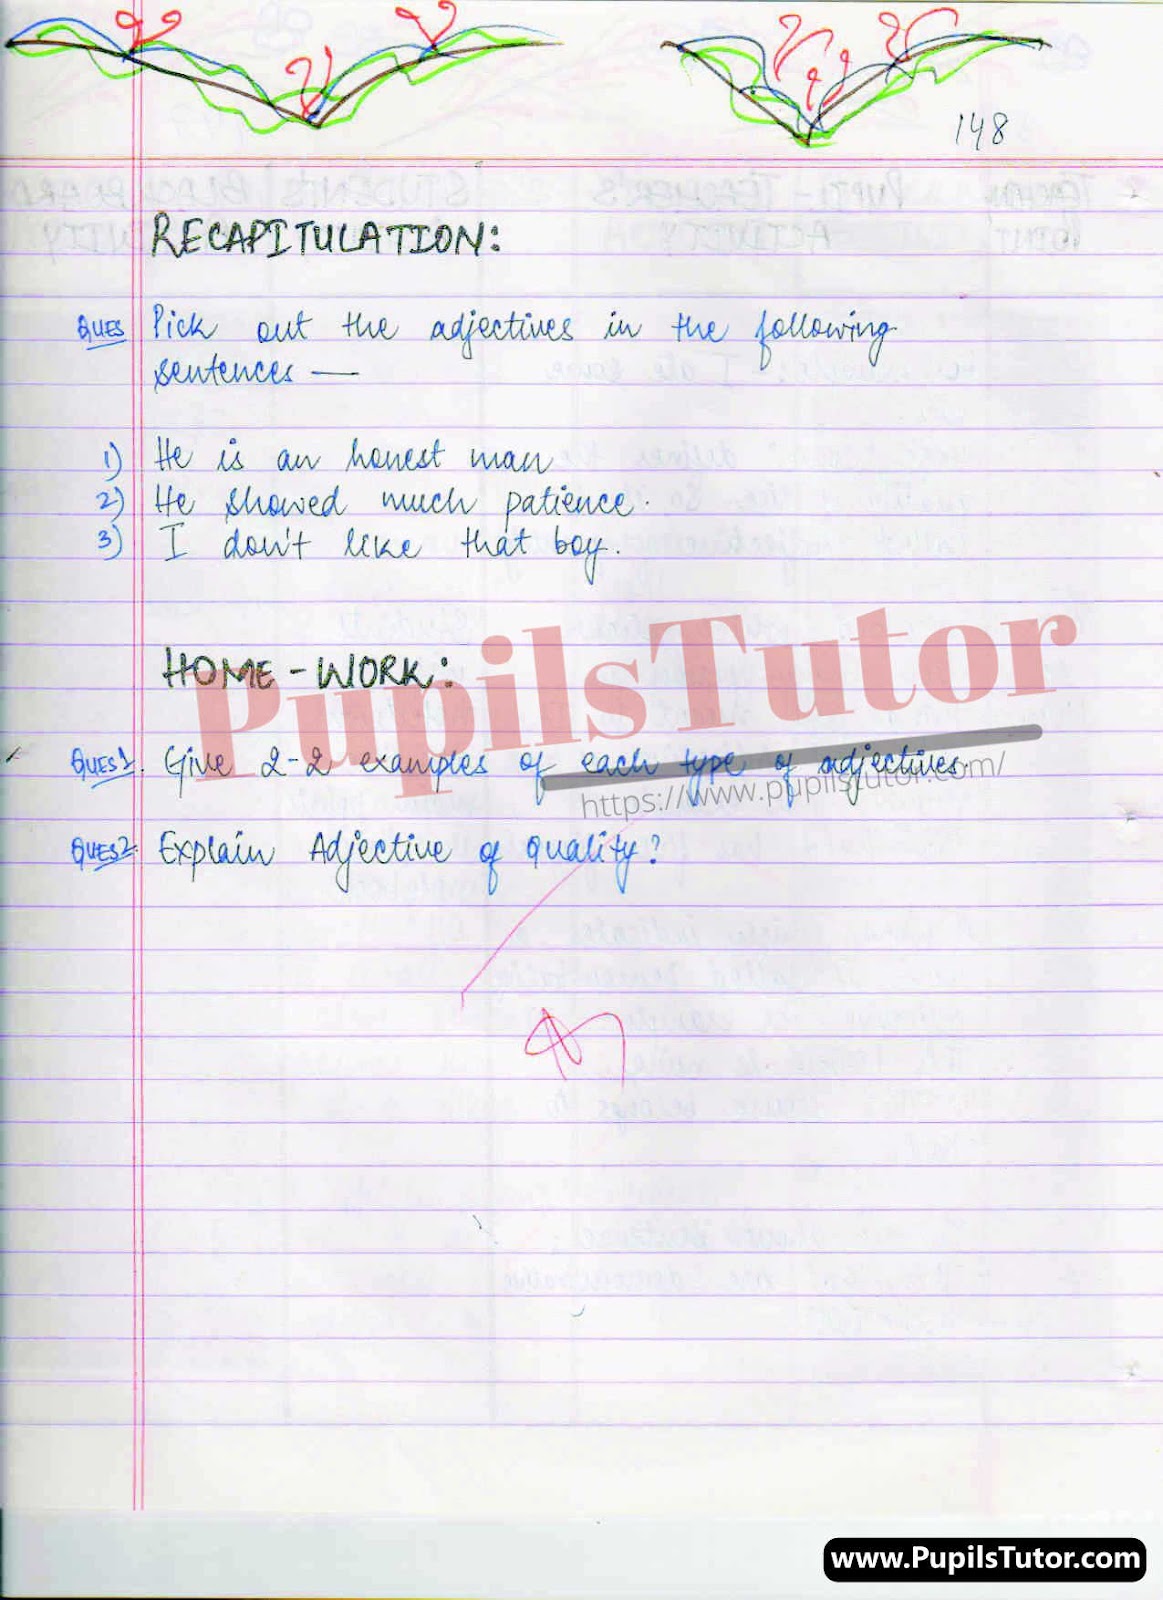 148
RECAPITULATION:
QUES Pick out the adjectives in the following
sentences —
1) He is an honest man
2) He showed much patience.
3) I don't like that boy.
PupilsTutor
HOME-WORK:
QUES 1. Give 2-2 examples of each type of adjectives.
https://www.pupilstutor.com/
QUES 2. Explain Adjective of Quality?
www.PupilsTutor.com